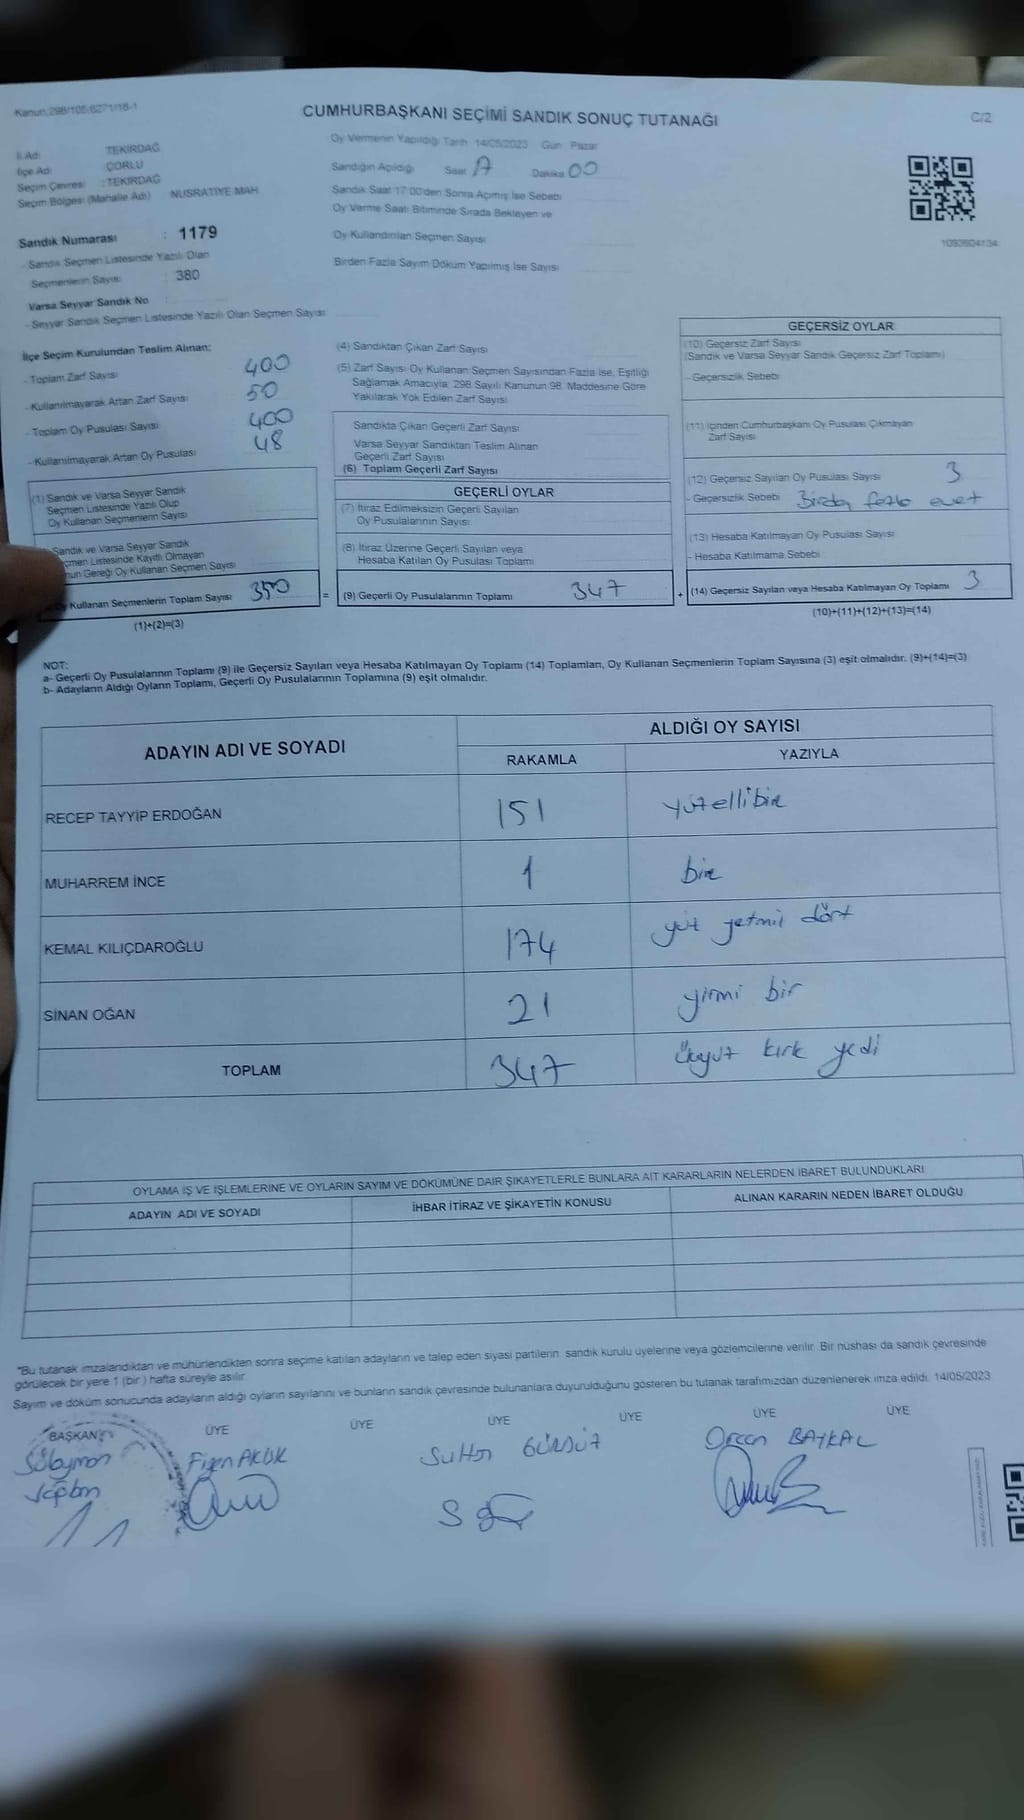 Kanun:298/105;6271/18-1
CUMHURBAŞKANI SEÇİMİ SANDIK SONUÇ TUTANAĞI
C/2
İl Adı : TEKİRDAĞ
İlçe Adı : ÇORLU
Seçim Çevresi : TEKİRDAĞ
Seçim Bölgesi (Mahalle Adı) NUSRATİYE MAH.
Sandık Numarası : 1179
- Sandık Seçmen Listesinde Yazılı Olan
Seçmenlerin Sayısı : 380
Varsa Seyyar Sandık No :
- Seyyar Sandık Seçmen Listesinde Yazılı Olan Seçmen Sayısı:
Oy Vermenin Yapıldığı Tarih: 14/05/2023 Gün: Pazar
Sandığın Açıldığı Saat Dakika 00
Sandık Saat 17:00'den Sonra Açılmış İse Sebebi
Oy Verme Saati Bitiminde Sırada Bekleyen ve
Oy Kullandırılan Seçmen Sayısı
Birden Fazla Sayım Döküm Yapılmış İse Sayısı
1093604134
İlçe Seçim Kurulundan Teslim Alınan:
- Toplam Zarf Sayısı 400
- Kullanılmayarak Artan Zarf Sayısı 50
- Toplam Oy Pusulası Sayısı 400
- Kullanılmayarak Artan Oy Pusulası 48
(1) Sandık ve Varsa Seyyar Sandık
Seçmen Listesinde Yazılı Olup
Oy Kullanan Seçmenlerin Sayısı
Sandık ve Varsa Seyyar Sandık
çmen Listesinde Kayıtlı Olmayan
nun Gereği Oy Kullanan Seçmen Sayısı
Oy Kullanan Seçmenlerin Toplam Sayısı 350
(1)+(2)=(3)
(4) Sandıktan Çıkan Zarf Sayısı
(5) Zarf Sayısı Oy Kullanan Seçmen Sayısından Fazla İse, Eşitliği
Sağlamak Amacıyla, 298 Sayılı Kanunun 98. Maddesine Göre
Yakılarak Yok Edilen Zarf Sayısı
Sandıkta Çıkan Geçerli Zarf Sayısı
Varsa Seyyar Sandıktan Teslim Alınan
Geçerli Zarf Sayısı
(6) Toplam Geçerli Zarf Sayısı
GEÇERLİ OYLAR
(7) İtiraz Edilmeksizin Geçerli Sayılan
Oy Pusulalarının Sayısı
(8) İtiraz Üzerine Geçerli Sayılan veya
Hesaba Katılan Oy Pusulası Toplamı
= (9) Geçerli Oy Pusulalarının Toplamı 347
GEÇERSİZ OYLAR
(10) Geçersiz Zarf Sayısı
(Sandık ve Varsa Seyyar Sandık Geçersiz Zarf Toplamı)
- Geçersizlik Sebebi
(11) İçinden Cumhurbaşkanı Oy Pusulası Çıkmayan
Zarf Sayısı
(12) Geçersiz Sayılan Oy Pusulası Sayısı 3
- Geçersizlik Sebebi Birden fazla evet
(13) Hesaba Katılmayan Oy Pusulası Sayısı
- Hesaba Katılmama Sebebi
+ (14) Geçersiz Sayılan veya Hesaba Katılmayan Oy Toplamı 3
(10)+(11)+(12)+(13)=(14)
NOT:
a- Geçerli Oy Pusulalarının Toplamı (9) ile Geçersiz Sayılan veya Hesaba Katılmayan Oy Toplamı (14) Toplamları, Oy Kullanan Seçmenlerin Toplam Sayısına (3) eşit olmalıdır. (9)+(14)=(3)
b- Adayların Aldığı Oyların Toplamı, Geçerli Oy Pusulalarının Toplamına (9) eşit olmalıdır.
ADAYIN ADI VE SOYADI ALDIĞI OY SAYISI
RAKAMLA YAZIYLA
RECEP TAYYİP ERDOĞAN 151 yüzellibir
MUHARREM İNCE 1 bir
KEMAL KILIÇDAROĞLU 174 yüz yetmiş dört
SİNAN OĞAN 21 yirmi bir
TOPLAM 347 üçyüz kırk yedi
OYLAMA İŞ VE İŞLEMLERİNE VE OYLARIN SAYIM VE DÖKÜMÜNE DAİR ŞİKAYETLERLE BUNLARA AİT KARARLARIN NELERDEN İBARET BULUNDUKLARI
ADAYIN ADI VE SOYADI İHBAR İTİRAZ VE ŞİKAYETİN KONUSU ALINAN KARARIN NEDEN İBARET OLDUĞU
*Bu tutanak imzalandıktan ve mühürlendikten sonra seçime katılan adayların ve talep eden siyasi partilerin sandık kurulu üyelerine veya gözlemcilerine verilir. Bir nüshası da sandık çevresinde
görülecek bir yere 1 (bir) hafta süreyle asılır.
Sayım ve döküm sonucunda adayların aldığı oyların sayılarını ve bunların sandık çevresinde bulunanlara duyurulduğunu gösteren bu tutanak tarafımızdan düzenlenerek imza edildi. 14/05/2023
BAŞKAN ÜYE ÜYE ÜYE ÜYE ÜYE ÜYE
Süleyman Figen Sultan GÜNDÜZ Orcan BAYKAL